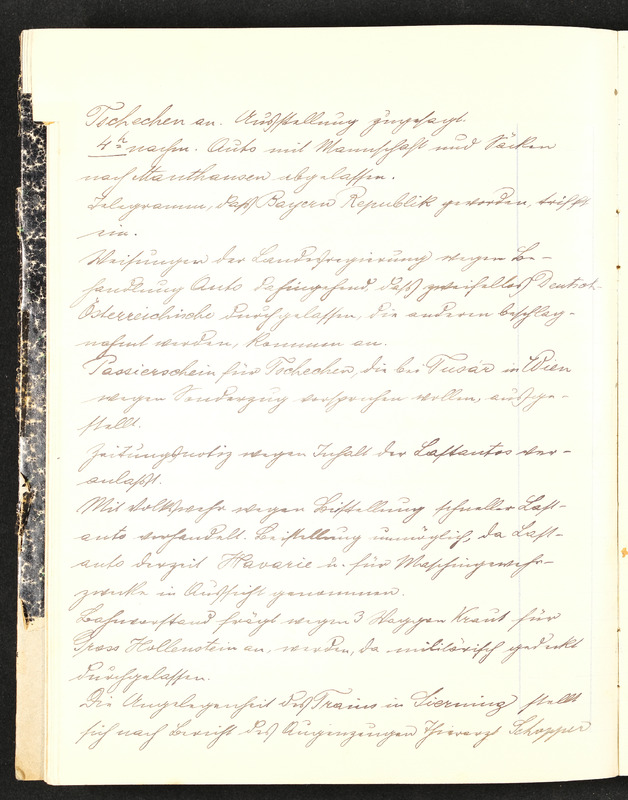 Tschechen an. Ausstellung zugesagt.
4 h nachm. Auto mit Mannschaft und Säcken
nach Mauthausen abgelassen.
Telegramm, daß Bayern Republik geworden, trifft
ein.
Weisungen der Landesregierung wegen Be-
handlung Auto dahingehend, daß zweifellos Deutsch-
Österreichische durchgelassen, die anderen beschlag-
nahmt werden, kommen an.
Passierschein für Tschechen, die bei Tusar in Wien
wegen Sonderzug vorsprechen wollen, ausge-
stellt.
Zeitungsnotiz wegen Inhalt der Lastautos ver-
anlaßt.
Mit Volkswehr wegen Beistellung schneller Last-
auto verhandelt. Beistellung unmöglich, da Last-
auto derzeit Havarie u. für Maschingewehr-
zwecke in Aussicht genommen.
Bahnvorstand frägt wegen 3 Waggon Kraut für
Gross Hollenstein an, werden, da militärisch gedeckt
durchgelassen.
Die Angelegenheit des Trains in Sierning stellt
sich nach Bericht des Augenzeugen Thierarzt Schopper